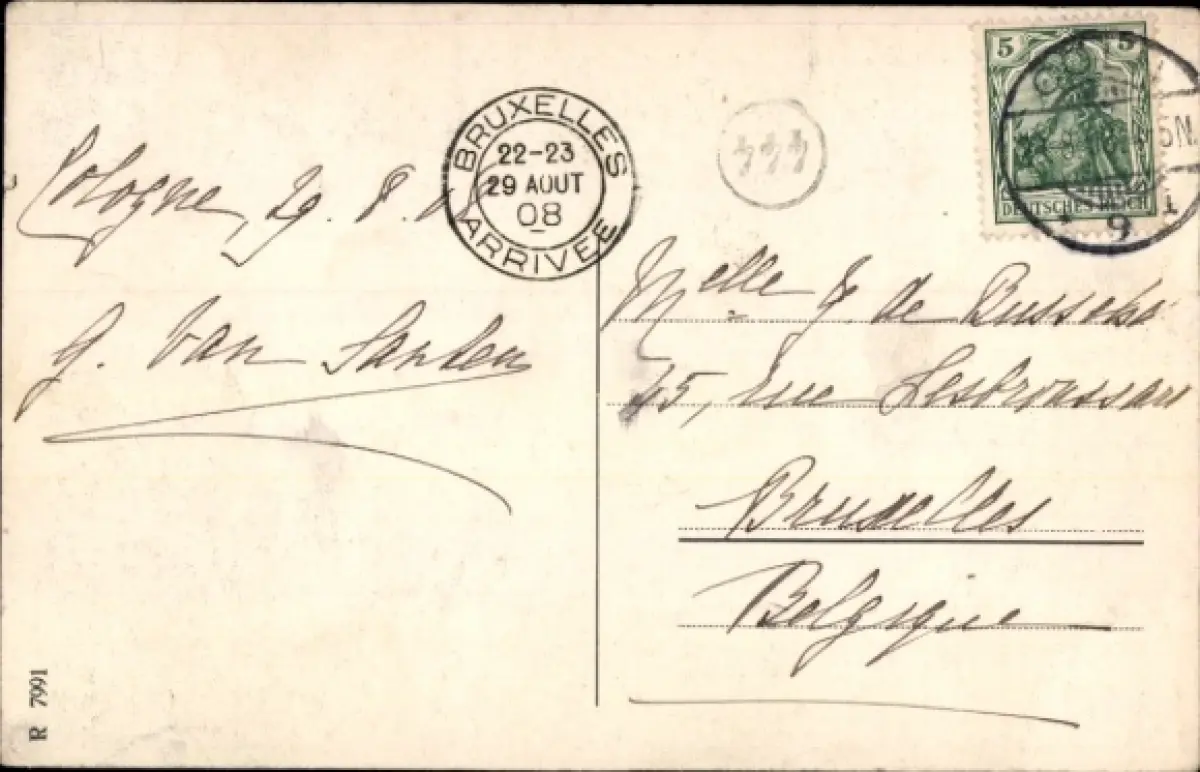 Cologne, 29. 8. 08
G. Van Santen
BRUXELLES
22-23
29 AOUT
08
ARRIVEE
5 5
DEUTSCHES REICH
5N.
9
Melle G. de
45, rue Lesbroussart
Bruxelles
Belgique
R 7991